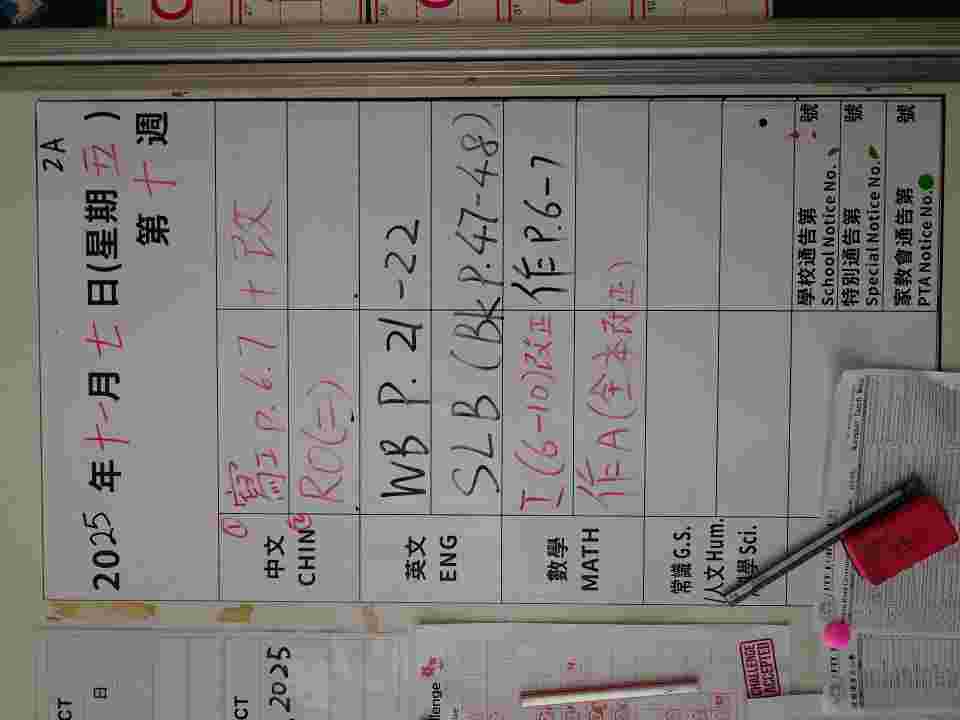 2A
2025年十一月七日(星期五)
第十週
中文
CHIN
① 寫工P.6.7 + 改
② RO(二)
英文
ENG
WB P. 21-22
SLB (Bk P.47-48)
數學
MATH
工(6-10)改正 作P.6-7
作A(全本改正)
常識 G.S.
人文 Hum.
科學 Sci.
學校通告第 號
School Notice No.
特別通告第 號
Special Notice No.
家教會通告第 號
PTA Notice No.
CT
日
CT
, 2025
llenge
CHALLENGE
ACCEPTED